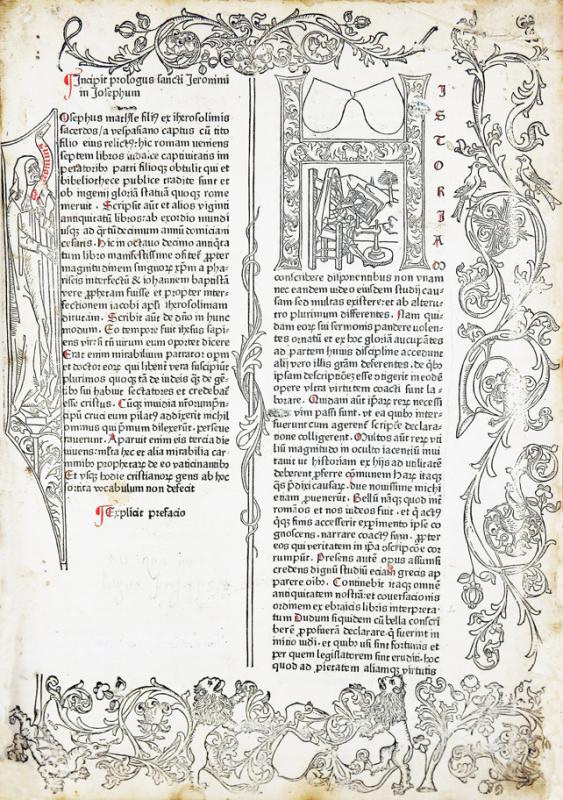 Incipit prologus sancti Jeronimi
in Josephum
Osephus mathie filiꝰ ex iherosolimis
sacerdos / a vespasiano captus cū tito
filio eius relictꝰ: hic romam veniens
septem libros iudaice captiuitatis im
peratoribꝫ patri filioqꝫ obtulit qui et
bibeliothece publice tradite sunt et
ob ingenij gloriā statuā quoqꝫ rome
meruit . Scripsit aūt et alios viginti
antiquitatū libros: ab exordio mundi
usqꝫ ad
cesaris . Hic in octauo decimo
tum libro manifestissime
magnitudinem signorꝝ xp̄m a pha
riseis interfectū & iohannem baptistā
vere ꝓphetam fuisse et propter inter
fectionem iacobi apl̄i iherosolimam
dirutam . Scribit aūt de dn̄o in hunc
modum . Eo tempore fuit ihesus sapi
ens vir: si tn̄ virum eum oportet dicere
Erat enim mirabilium patrator opm̄
et doctor eorꝝ qui libent vera suscipiūt
plurimos quoqꝫ tā de iudeis qꝫ de gē
tibꝫ sui habuit sectatores et credebat
esse cristus . Cūqꝫ inuidia
cipū cruci eum pilatꝰ addixerit nichil
ominus qui pͥmum dilexerūt . perseue
rauerunt . Aparuit enim eis tercia die
viuens: multa hec et alia mirabilia car
minibꝫ prophetarꝝ de eo vaticinantibꝫ
Et usqꝫ hodie cristianorꝝ gens ab hoc
sortita vocabulum non defecit
Explicit prefacio
H
ISTORIAM
conscribere disponentibus non vnam
nec eandem video eiusdem studij cau
sam sed multas existere: et ab alteru
tro plurimum differentes . Nam qui
dam eorꝫ sui sermonis pandere volen
tes ornatū et ex hoc gloriā aucupātes
ad partem huius discipline accedunt
alij vero illis gram̄ deferentes, de qͥbꝫ
ipsam descriptionē esse ōtigerit in eodē
opere vltra virtutem coacti sunt la-
borare . Quidam aūt ip̄arꝫ rerꝫ necessi
vim passi sunt . vt ea quibꝫ inter
fuerunt cum agerent scripte declara
tione colligerent . Multos aūt rerꝫ vti
liū magnitudo in oculto iacentiū inui
tauit vt historiam ex hijs ad vtilitatē
deberent ꝓferre cōmunem Harꝫ itaqꝫ
qͣs pͥdixi causarꝫ . due nouissime michi
etiam ꝓuenerūt . Bellū nāqꝫ quod int̄
romāos et nos iudeos fuit . et q̄ actꝰ
qͥqꝫ finis accesserit expimento ipse co
gnoscens . narrare coactꝰ sum . ꝓpter
eos qui veritatem in ip̄a ōscripcōe cor
rumpūt . Presens autē opus assumsi
credens dignū studiū eciam grecis ap
parere oībꝫ . Continebit itaqꝫ omnē
antiquitatem nostrā: et cōuersacionis
ordinem ex ebraicis libris interpreta-
tum Dudum siquidem cū bella conscri
berē ꝓposuerā declarare . qͥ fuerint in
initio iudi . et quibꝫ vsi sint fortunis et
per quem legislatorem sint eruditi: hoc
quod ad pietatem aliamqꝫ virtutis